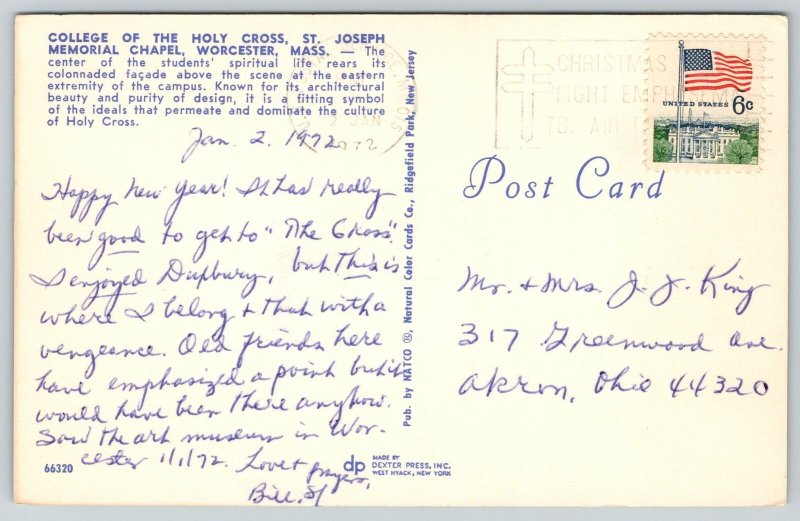 COLLEGE OF THE HOLY CROSS, ST. JOSEPH
MEMORIAL CHAPEL, WORCESTER, MASS. — The
center of the students' spiritual life rears its
colonnaded façade above the scene at the eastern
extremity of the campus. Known for its architectural
beauty and purity of design, it is a fitting symbol
of the ideals that permeate and dominate the culture
of Holy Cross.
Jan. 2, 1972
Happy New Year! It has really
been good to get to "The Cross".
I enjoyed Duxbury, but This is
where I belong + that with a
vengeance. Old friends here
have emphasized a point but it
would have been there anyhow.
Saw the art museum in Wor-
cester 1/1/72. Love + prayers,
Bill, SJ
66320
Pub. by NATCO ®, Natural Color Cards Co., Ridgefield Park, New Jersey
dp
MADE BY
DEXTER PRESS, INC.
WEST NYACK, NEW YORK
JAN
1972
CHRISTMAS
FIGHT EMPHYSEM
TB. AIR
UNITED STATES 6c
Post Card
Mr. + Mrs. J. J. King
317 Greenwood Ave.
Akron, Ohio 44320